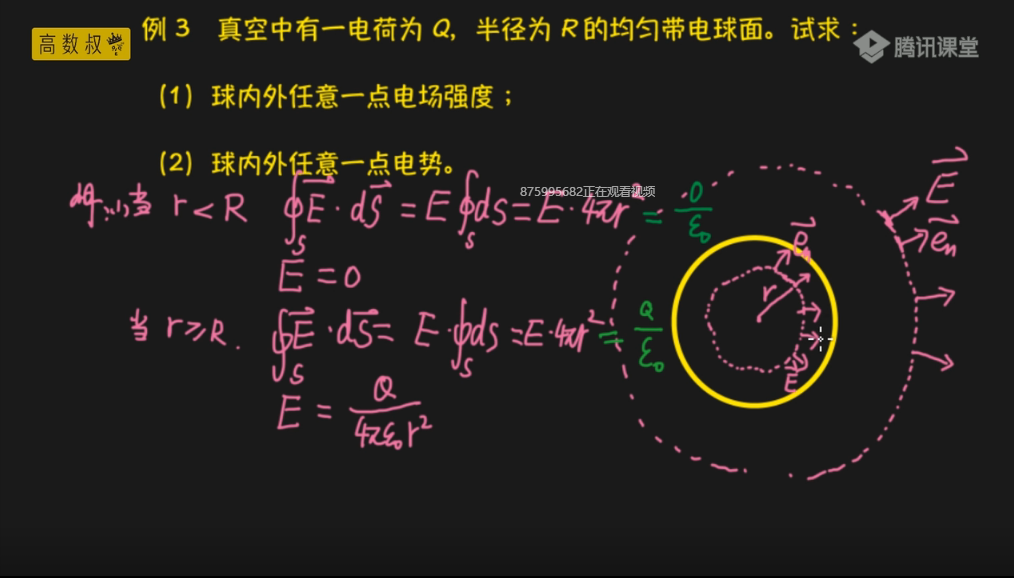 高数叔
例 3 真空中有一电荷为 Q，半径为 R 的均匀带电球面。试求：
腾讯课堂
(1) 球内外任意一点电场强度；
(2) 球内外任意一点电势。
875995682正在观看视频
解:(1)当 r<R ∮_S E⃗·dS⃗ = E∮_S ds = E·4πr² = 0/ε₀
E = 0
当 r≥R. ∮_S E⃗·dS⃗ = E·∮_S ds = E·4πr² = Q/ε₀
E = Q/4πε₀r²
E⃗
e⃗n
e⃗n
r
E⃗